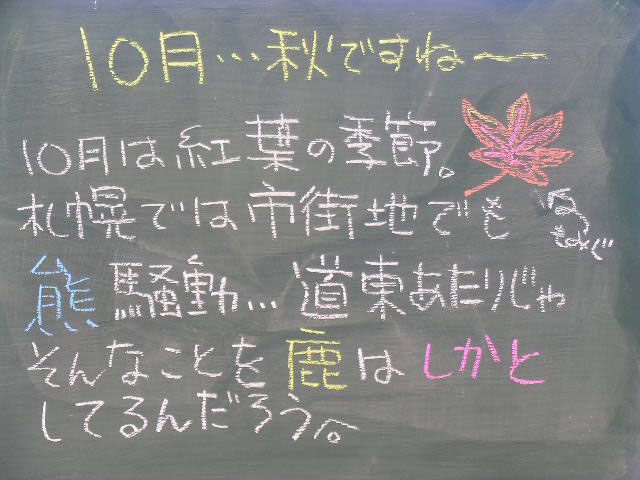 10月…秋ですねー
10月は紅葉の季節。
札幌では市街地でも
熊騒動…道東あたりじゃ
そんなことを鹿はしかと
してるんだろうへ。